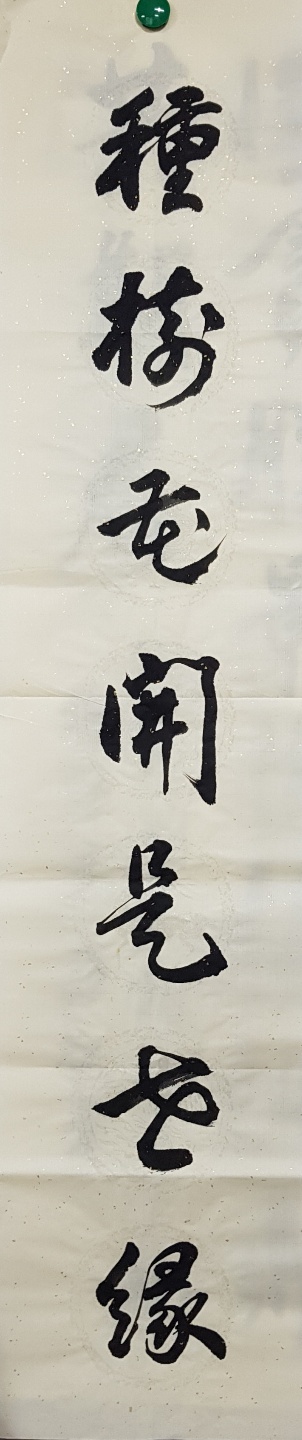 種樹花開是世緣